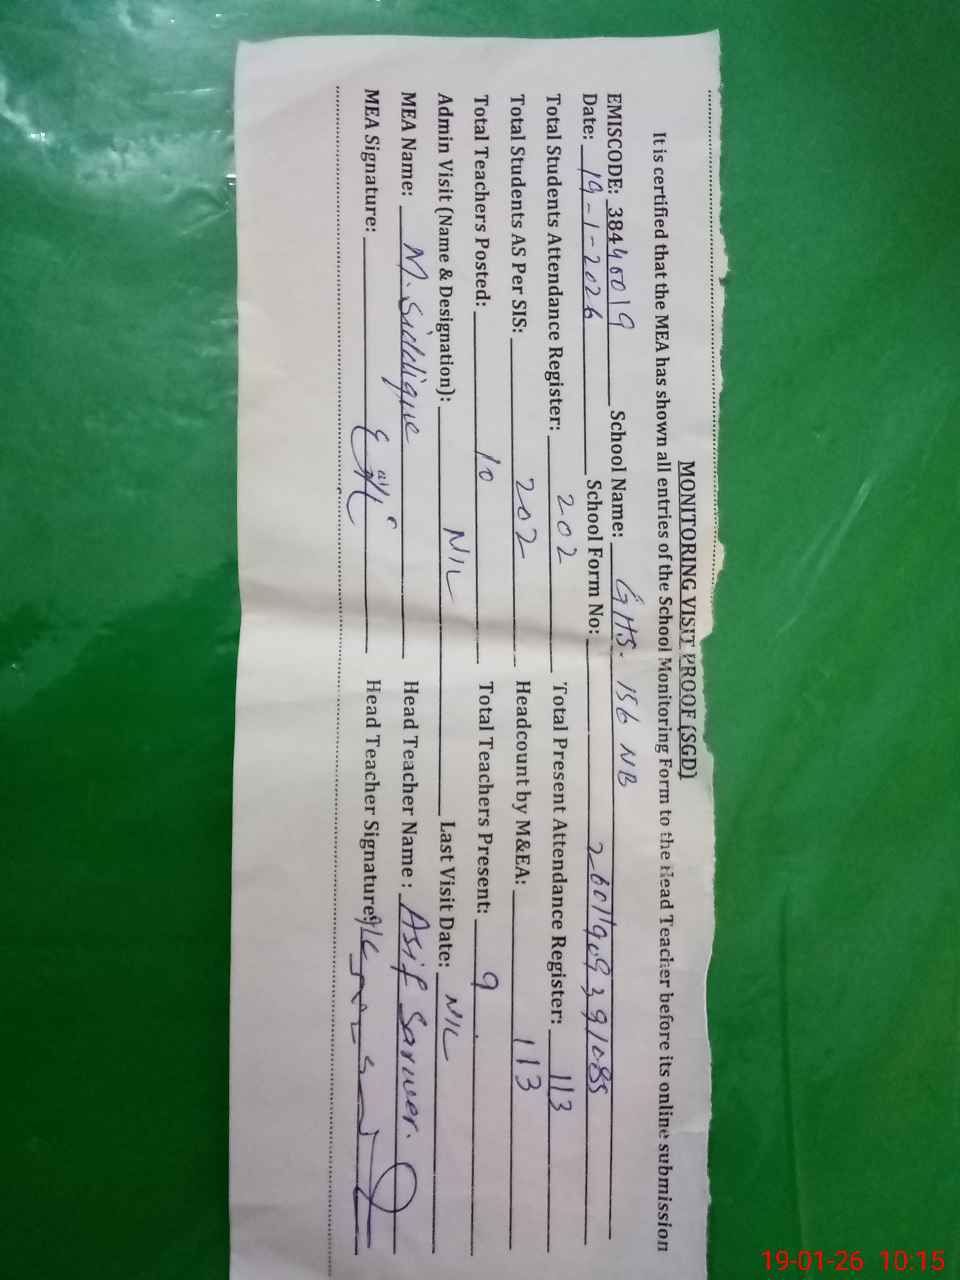 MONITORING VISIT PROOF (SGD)
It is certified that the MEA has shown all entries of the School Monitoring Form to the Head Teacher before its online submission
EMISCODE: 38440019 School Name: GHS. 156 NB
Date: 19-1-2026 School Form No:
Total Students Attendance Register: 202 Total Present Attendance Register: 113
Total Students AS Per SIS: 202 Headcount by M&EA: 113
Total Teachers Posted: 10 Total Teachers Present: 9
Admin Visit (Name & Designation): NIL Last Visit Date: NIL
MEA Name: M. Siddique Head Teacher Name : Asif Sarwer.
MEA Signature: Head Teacher Signature:
19-01-26 10:15